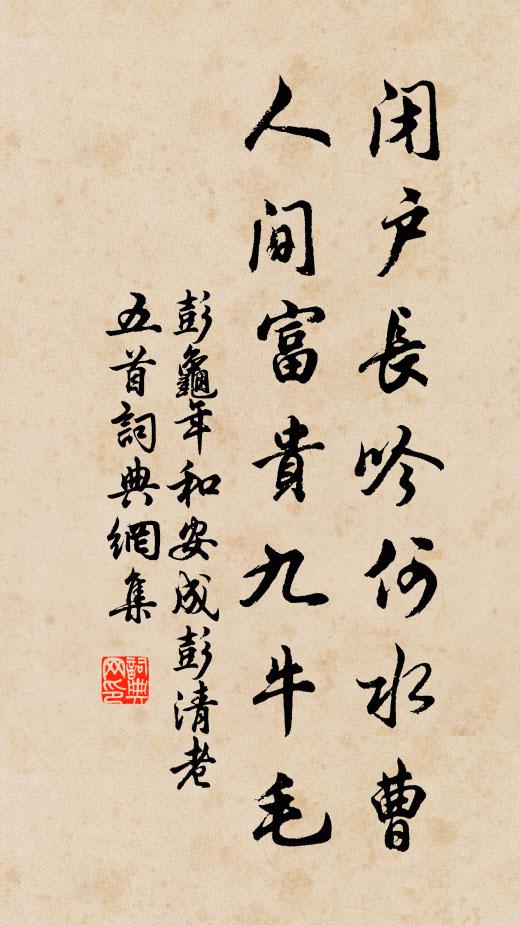 闭户長吟何水曹
人间富貴九牛毛
彭龜年和安成彭清老
五首詞典網集
詞典网印